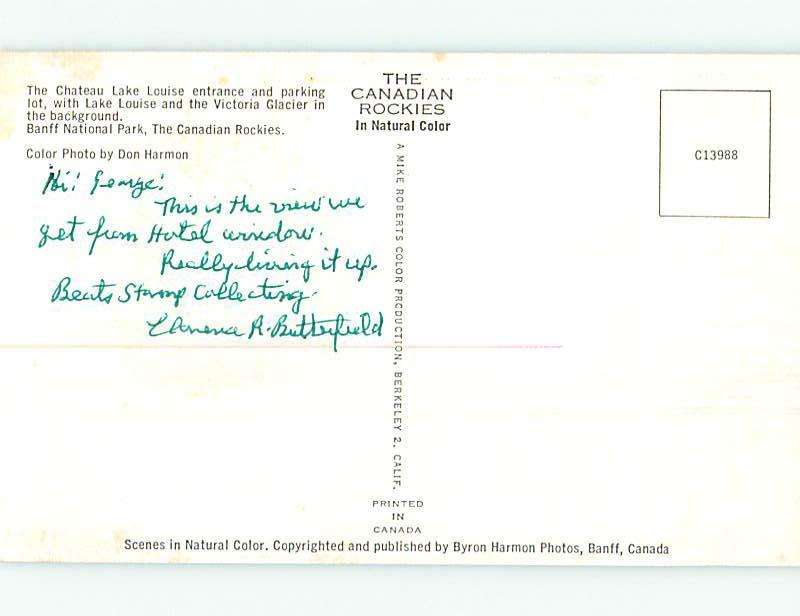 The Chateau Lake Louise entrance and parking
lot, with Lake Louise and the Victoria Glacier in
the background.
Banff National Park, The Canadian Rockies.
Color Photo by Don Harmon
Hi! George!
This is the view we
get from Hotel window.
Really living it up.
Beats Stamp Collecting.
Clarence R. Butterfield
THE
CANADIAN
ROCKIES
In Natural Color
A MIKE ROBERTS COLOR PRODUCTION, BERKELEY 2, CALIF.
PRINTED
IN
CANADA
C13988
Scenes in Natural Color. Copyrighted and published by Byron Harmon Photos, Banff, Canada